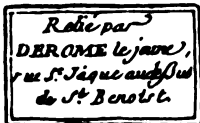 Relié par
DEROME le jeune,
rue St. Jaque audeßus
de St. Benoist.